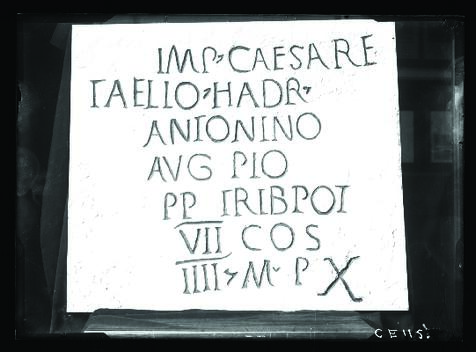 IMP·CAESARE
TAELIO·HADR·
ANTONINO
AVG PIO
PP TRIBPOT
VII COS
IIII·M·P X
CE115